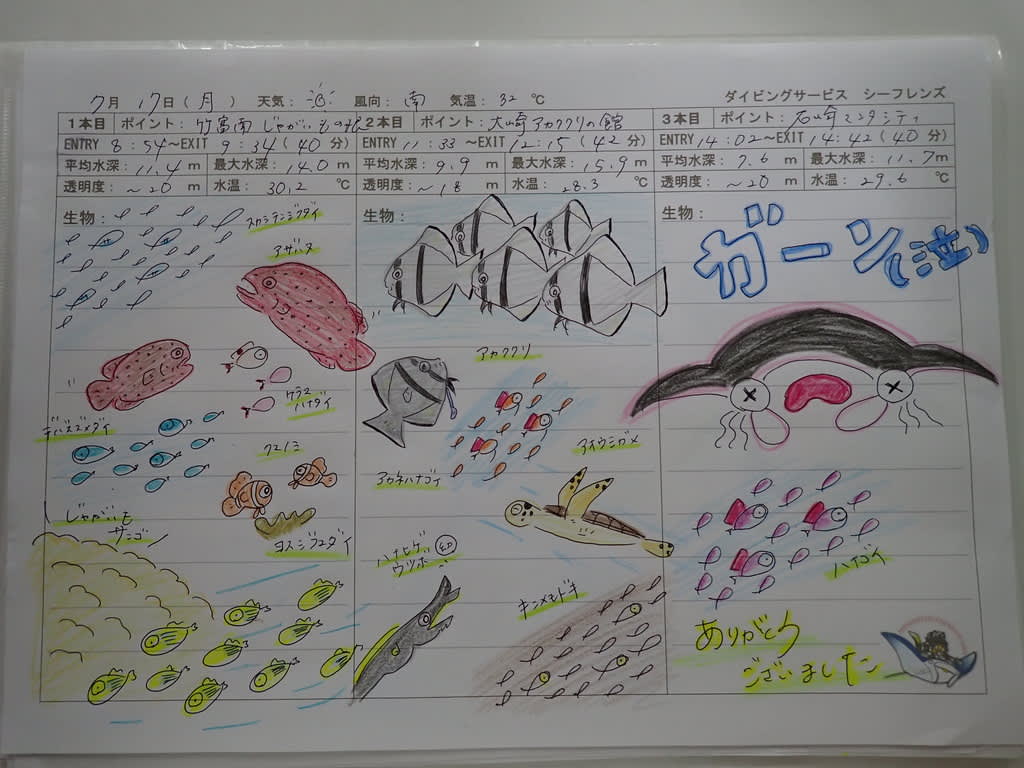 7月 17日(月) 天気: 風向: 南 気温: 32 ℃ ダイビングサービス シーフレンズ
1本目 ポイント: 竹富南 じゃがいもの根
ENTRY 8:54〜EXIT 9:34 (40分)
平均水深: 11.4 m 最大水深: 14.0 m
透明度: 〜20 m 水温: 30.2 ℃
生物:
スカシテンジクダイ
アザハタ
ケラマハナダイ
デバスズメダイ
クマノミ
じゃがいも
サンゴ
ヨスジフエダイ
2本目 ポイント: 大崎アカククリの館
ENTRY 11:33〜EXIT 12:15 (42分)
平均水深: 9.9 m 最大水深: 15.9 m
透明度: 〜18 m 水温: 28.3 ℃
生物:
アカククリ
アカネハナゴイ
アオウミガメ
ハナヒゲ
ウツボ
キンメモドキ
3本目 ポイント: 石崎マンタシティ
ENTRY 14:02〜EXIT 14:42 (40分)
平均水深: 7.6 m 最大水深: 11.7m
透明度: 〜20 m 水温: 29.6 ℃
生物:
ガーン(泣)
ハナゴイ
ありがとう
ございました